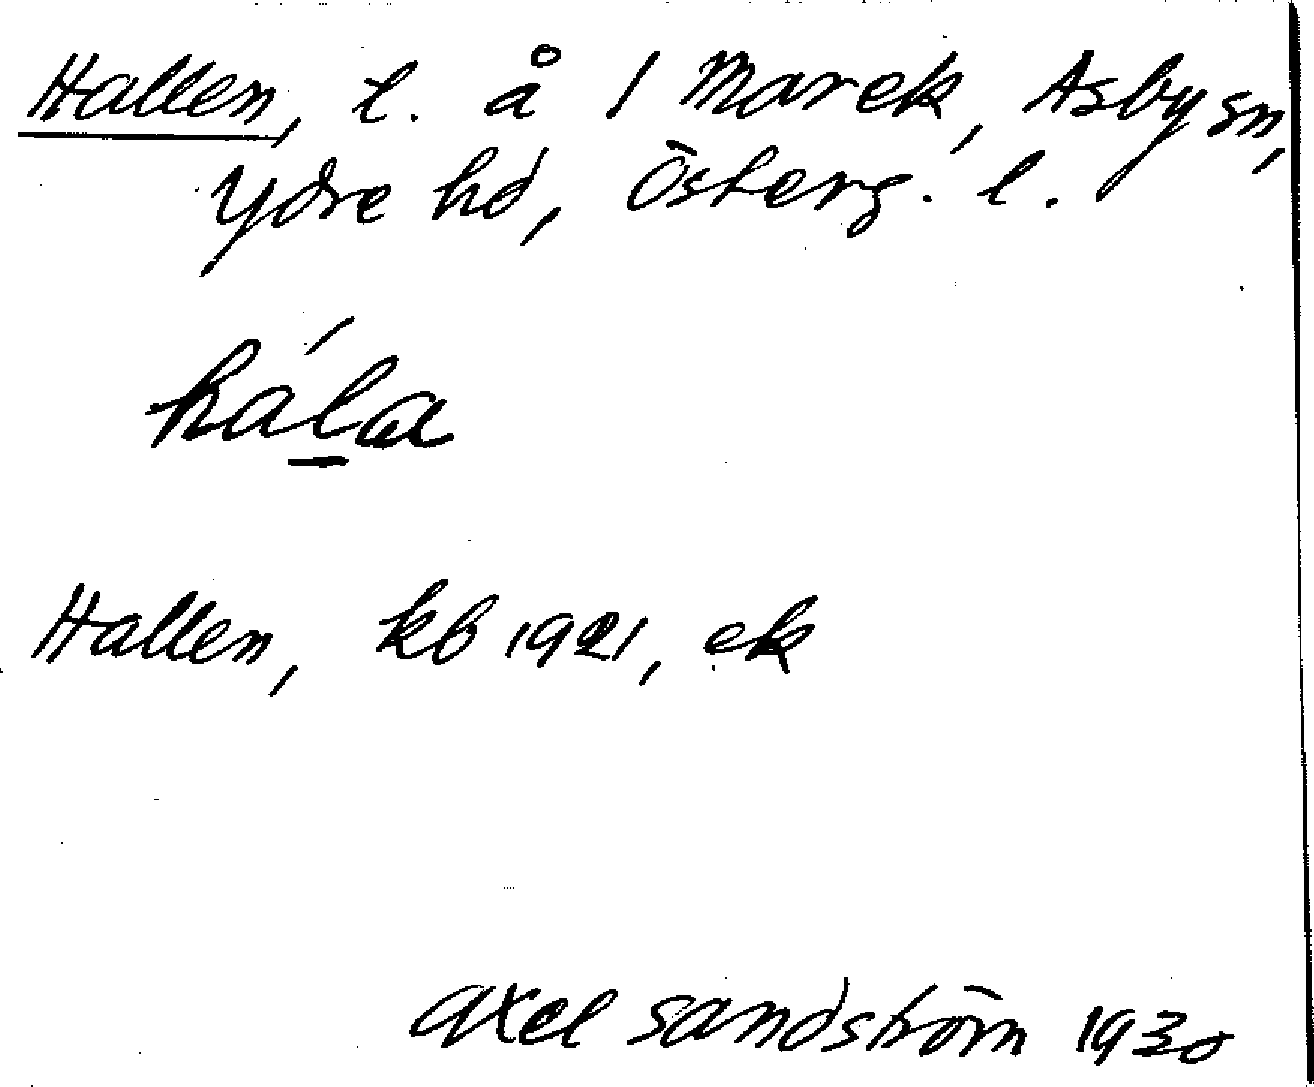 Hallen, t. å 1 Marek, Asby sn,
Ydre hd, Österg. l.
hála
Hallen, kb 1921, ek
Axel Sandström 1930